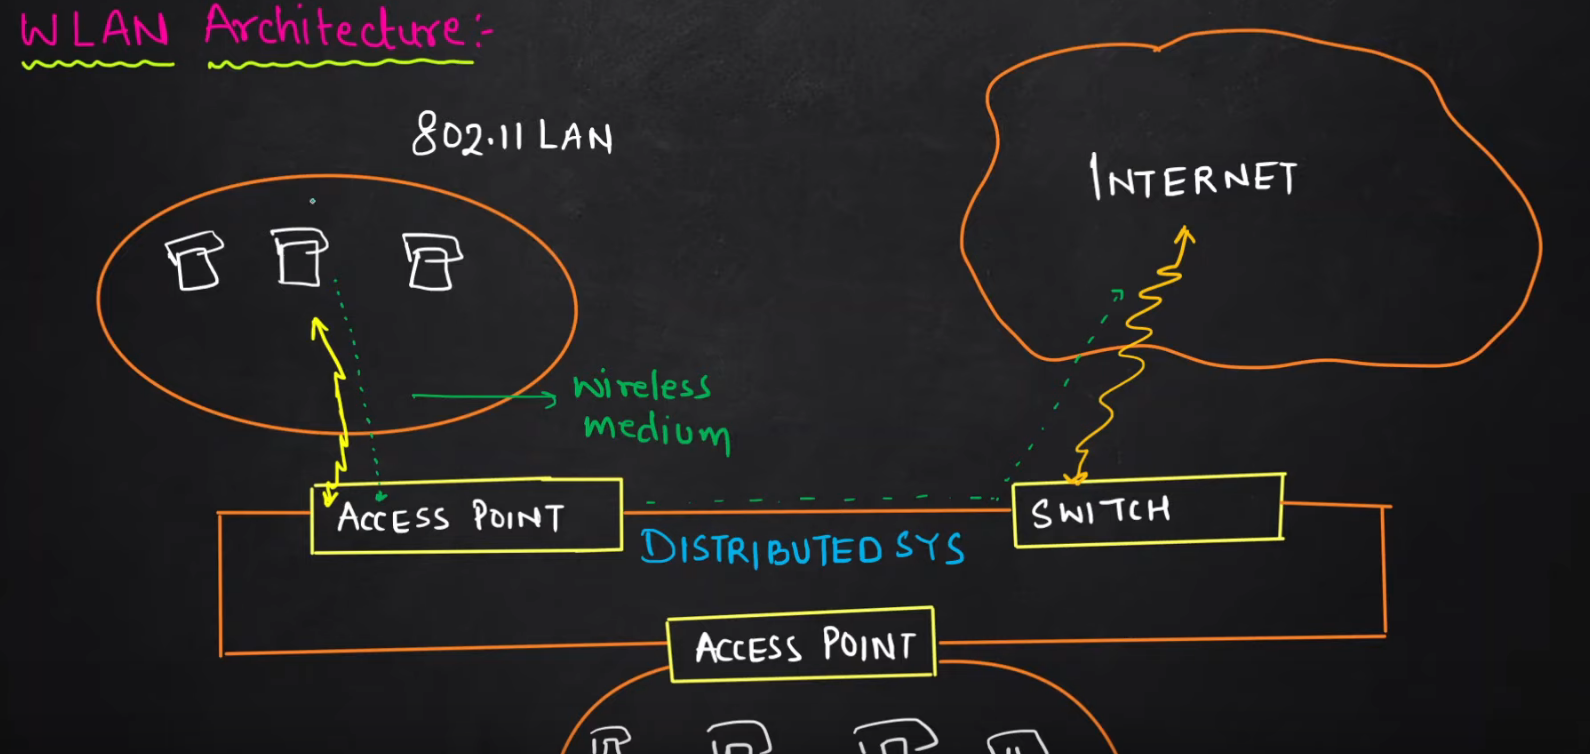 WLAN Architecture:-
802.11 LAN
INTERNET
wireless
medium
ACCESS POINT
SWITCH
DISTRIBUTED SYS
ACCESS POINT